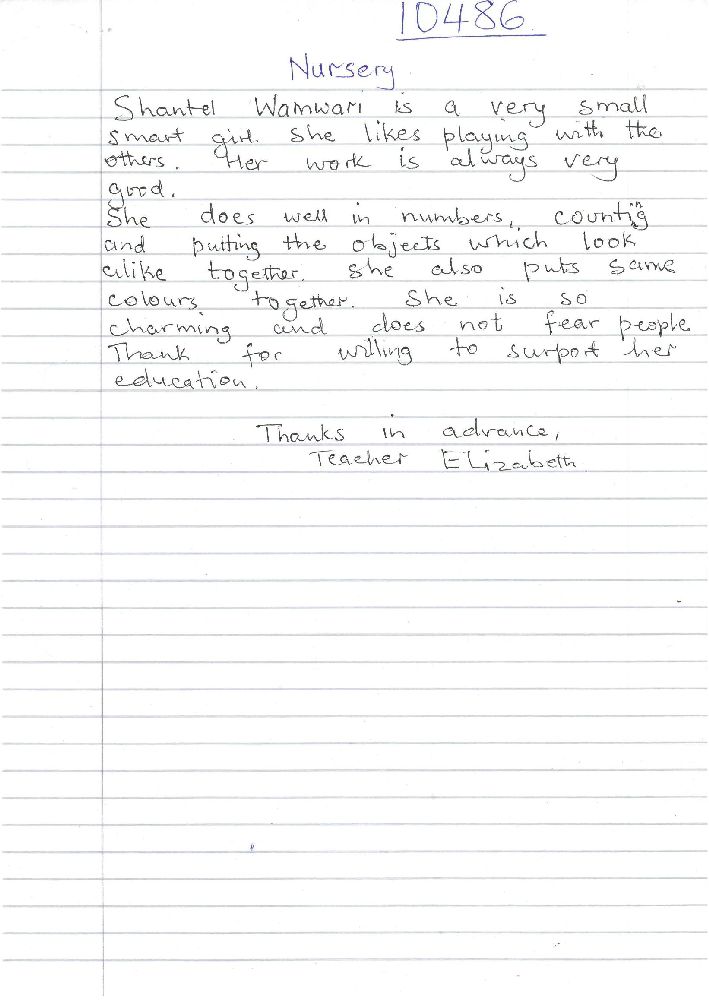 10486
Nursery
Shantel Wamwari is a very small
smart girl. She likes playing with the
others. Her work is always very
good.
She does well in numbers, counting
and putting the objects which look
alike together. She also puts same
colours together. She is so
charming and does not fear people
Thank for willing to surport her
education.
Thanks in advance,
Teacher Elizabeth